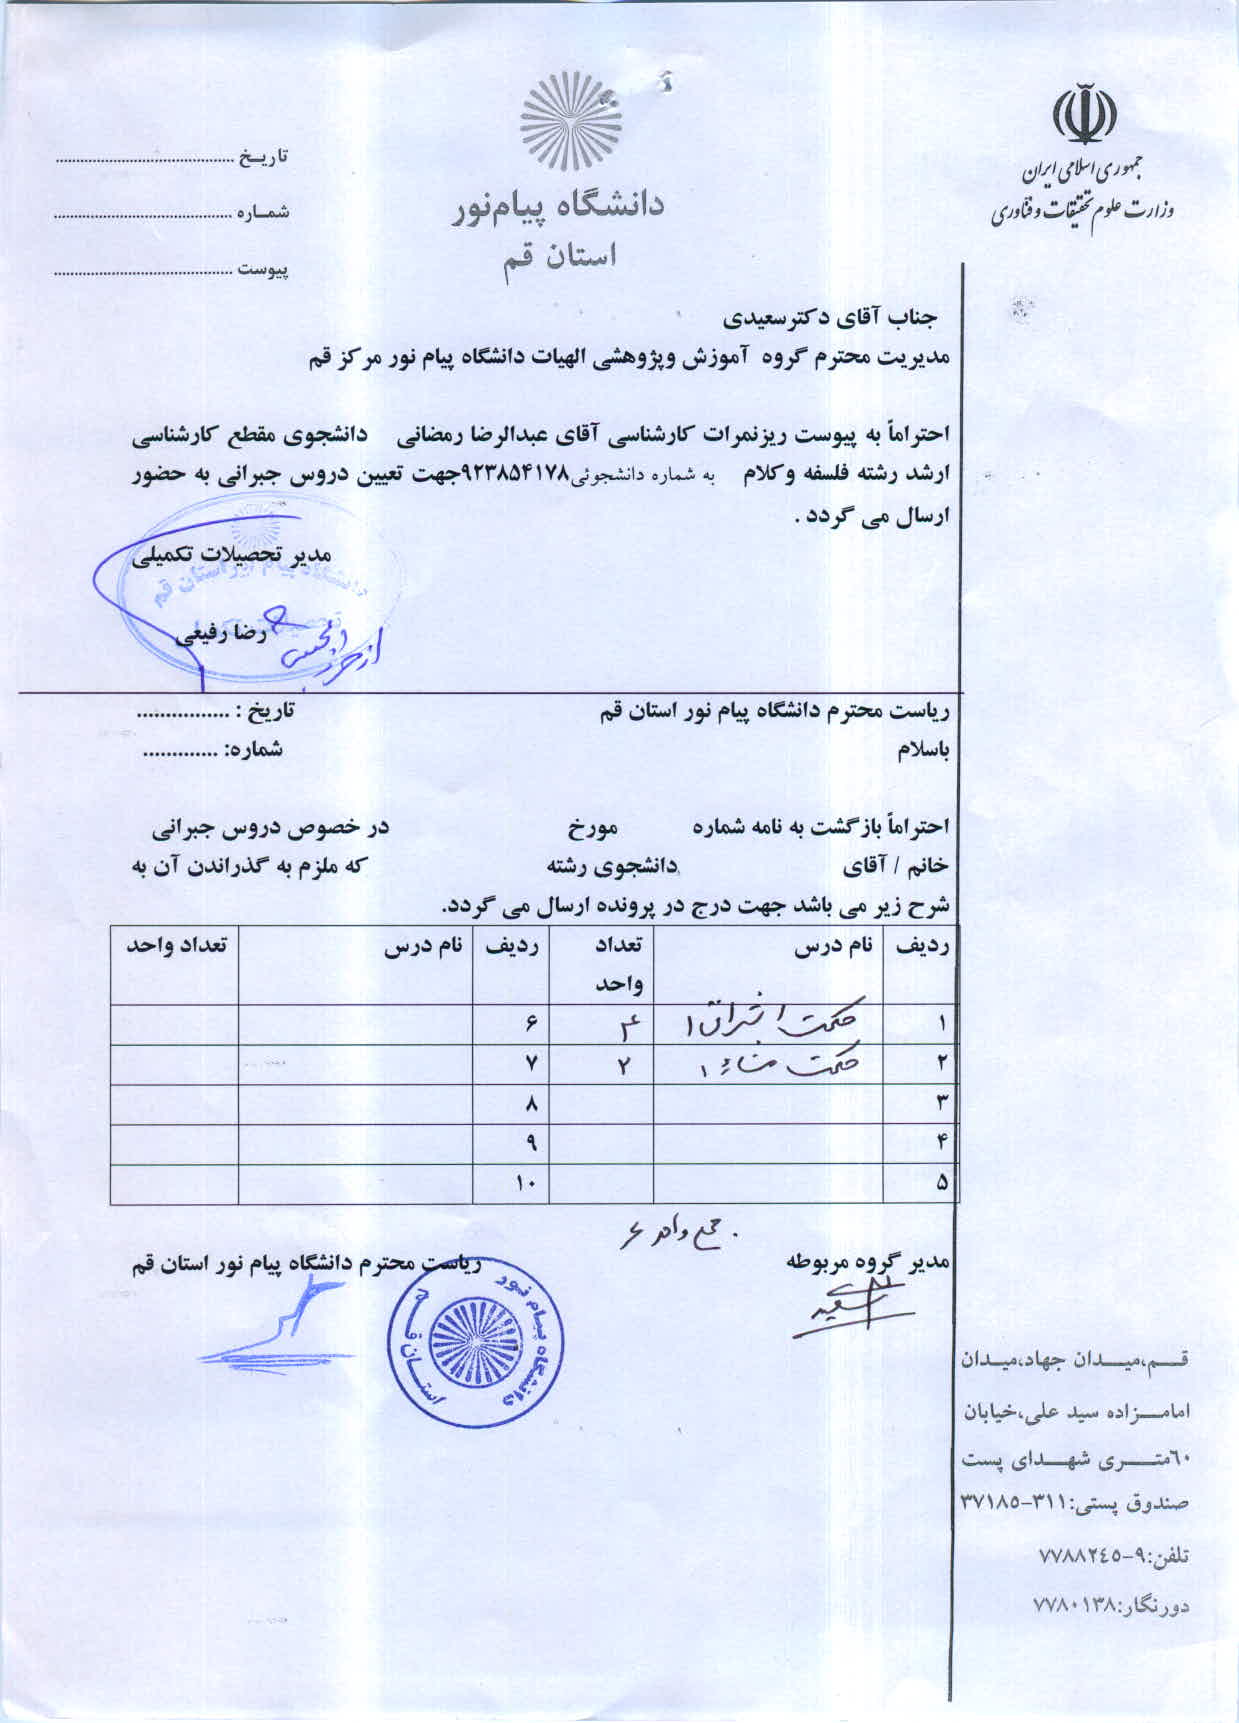 جمهوری اسلامی ایران
وزارت علوم تحقیقات و فناوری
دانشگاه پیام‌نور
استان قم
تاریخ ........................................
شماره ........................................
پیوست ........................................
جناب آقای دکترسعیدی
مدیریت محترم گروه آموزش وپژوهشی الهیات دانشگاه پیام نور مرکز قم
احتراماً به پیوست ریزنمرات کارشناسی آقای عبدالرضا رمضانی دانشجوی مقطع کارشناسی
ارشد رشته فلسفه وکلام به شماره دانشجوئی۹۲۳۸۵۴۱۷۸جهت تعیین دروس جبرانی به حضور
ارسال می گردد .
مدیر تحصیلات تکمیلی
رضا رفیعی
ریاست محترم دانشگاه پیام نور استان قم تاریخ : ................
باسلام شماره: .............
احتراماً بازگشت به نامه شماره مورخ در خصوص دروس جبرانی
خانم / آقای دانشجوی رشته که ملزم به گذراندن آن به
شرح زیر می باشد جهت درج در پرونده ارسال می گردد.
ردیف نام درس تعداد واحد ردیف نام درس تعداد واحد
۱ حکمت اشراق ۱ ۴ ۶
۲ حکمت مشاء ۱ ۲ ۷
۳ ۸
۴ ۹
۵ ۱۰
جمع واحد ۶
مدیر گروه مربوطه ریاست محترم دانشگاه پیام نور استان قم
دانشگاه پیام نور
استان قم
قم،میدان جهاد،میدان
امامزاده سید علی،خیابان
۶۰متری شهدای پست
صندوق پستی:۳۱۱-۳۷۱۸۵
تلفن:۹-۷۷۸۸۲۴۵
دورنگار:۷۷۸۰۱۳۸